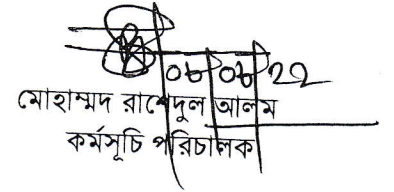 ০৮ ০৮ 22
মোহাম্মদ রাশেদুল আলম
কর্মসূচি পরিচালক